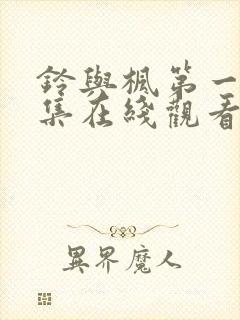 鈴與楓第一
集在綫觀看
異界魔人